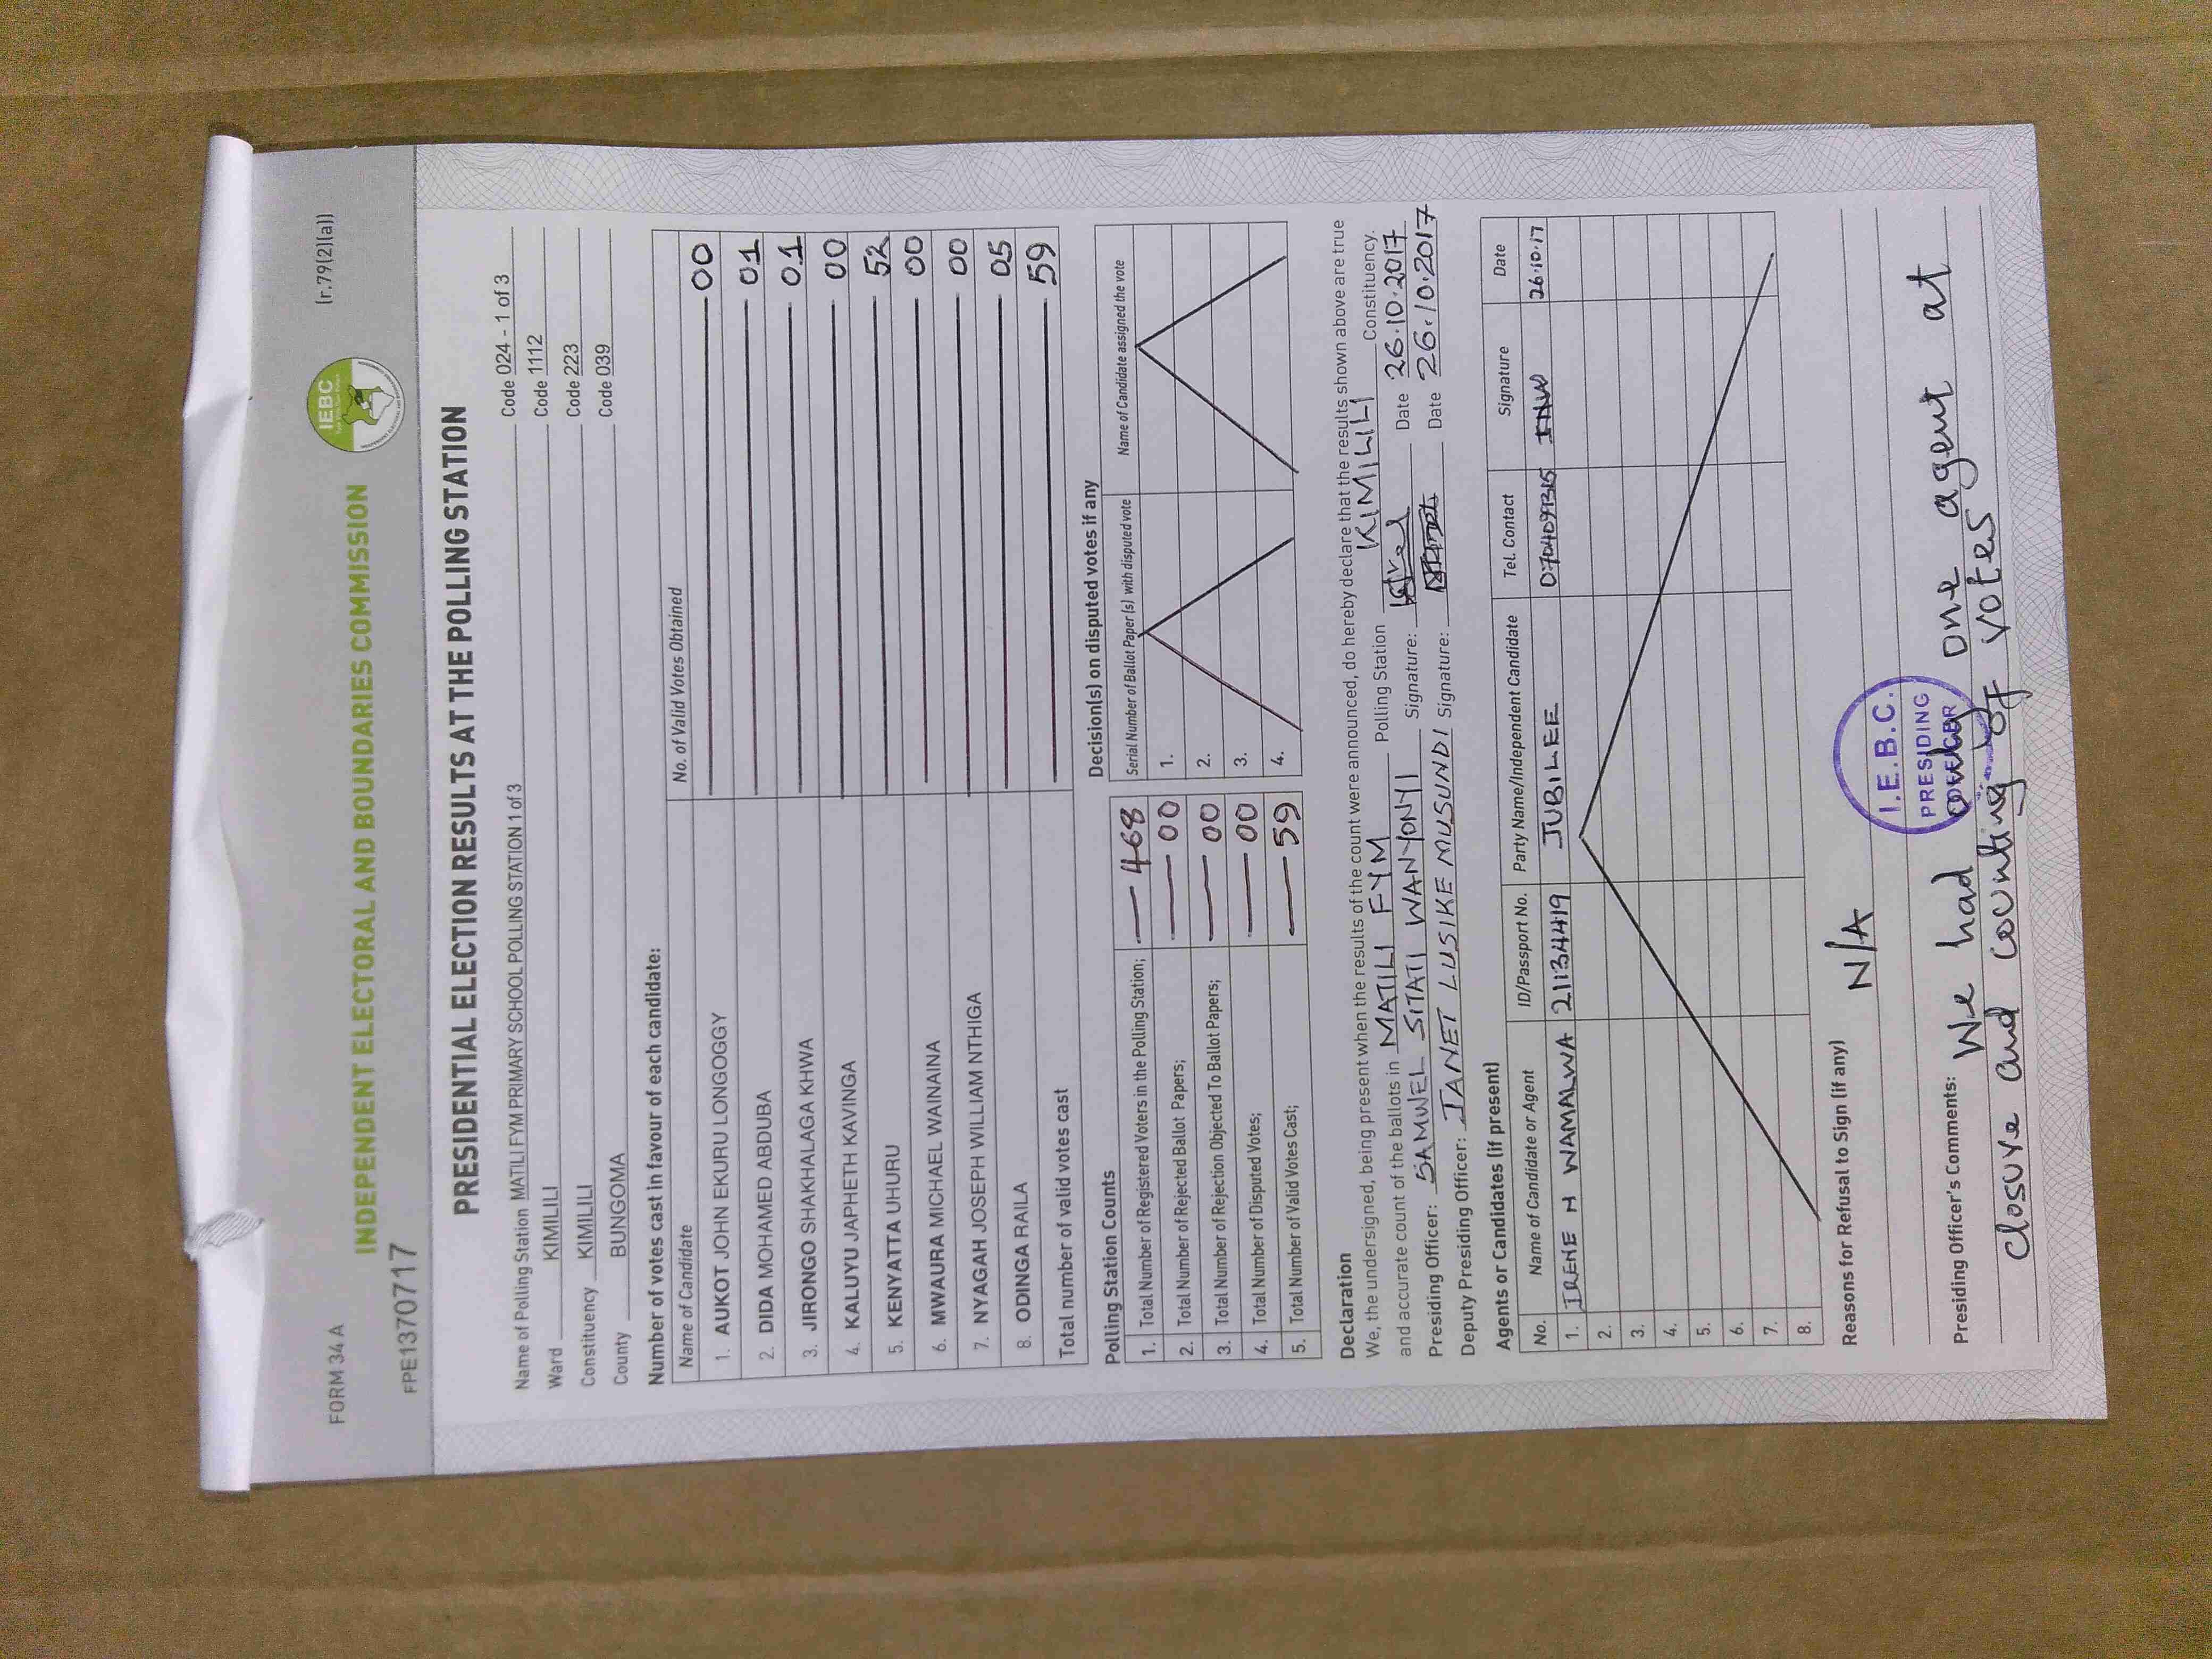 FORM 34 A
(r.79(2)(a))
IEBC
INDEPENDENT ELECTORAL AND BOUNDARIES COMMISSION
FPE1370717
PRESIDENTIAL ELECTION RESULTS AT THE POLLING STATION
Name of Polling Station MATILI FYM PRIMARY SCHOOL POLLING STATION 1 of 3 Code 024 - 1 of 3
Ward KIMILILI Code 1112
Constituency KIMILILI Code 223
County BUNGOMA Code 039
Number of votes cast in favour of each candidate:
Name of Candidate No. of Valid Votes Obtained
1. AUKOT JOHN EKURU LONGOGGY 00
2. DIDA MOHAMED ABDUBA 01
3. JIRONGO SHAKHALAGA KHWA 01
4. KALUYU JAPHETH KAVINGA 00
5. KENYATTA UHURU 52
6. MWAURA MICHAEL WAINAINA 00
7. NYAGAH JOSEPH WILLIAM NTHIGA 00
8. ODINGA RAILA 05
Total number of valid votes cast 59
Polling Station Counts
1. Total Number of Registered Voters in the Polling Station; 468
2. Total Number of Rejected Ballot Papers; 00
3. Total Number of Rejection Objected To Ballot Papers; 00
4. Total Number of Disputed Votes; 00
5. Total Number of Valid Votes Cast; 59
Decision(s) on disputed votes if any
Serial Number of Ballot Paper (s) with disputed vote Name of Candidate assigned the vote
1.
2.
3.
4.
Declaration
We, the undersigned, being present when the results of the count were announced, do hereby declare that the results shown above are true
and accurate count of the ballots in MATILI FYM Polling Station KIMILILI Constituency.
Presiding Officer: SAMWEL SITATI WANYONYI Signature: Date 26.10.2017
Deputy Presiding Officer: JANET LUSIKE MUSUNDI Signature: Date 26.10.2017
Agents or Candidates (if present)
No. Name of Candidate or Agent ID/Passport No. Party Name/Independent Candidate Tel. Contact Signature Date
1. IRENE N WAMALWA 21134419 JUBILEE 26.10.17
2.
3.
4.
5.
6.
7.
8.
Reasons for Refusal to Sign (if any) N/A
I.E.B.C.
PRESIDING
OFFICER
Presiding Officer's Comments: We had only one agent at
closure and counting of votes